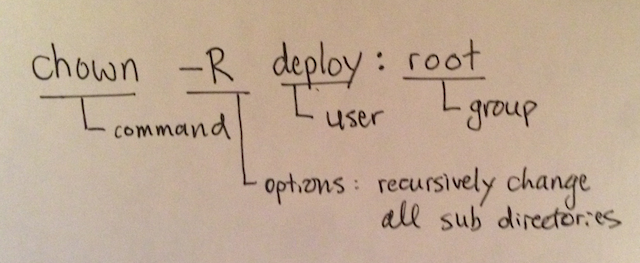 chown -R deploy : root
command
user
group
options : recursively change
all sub directories